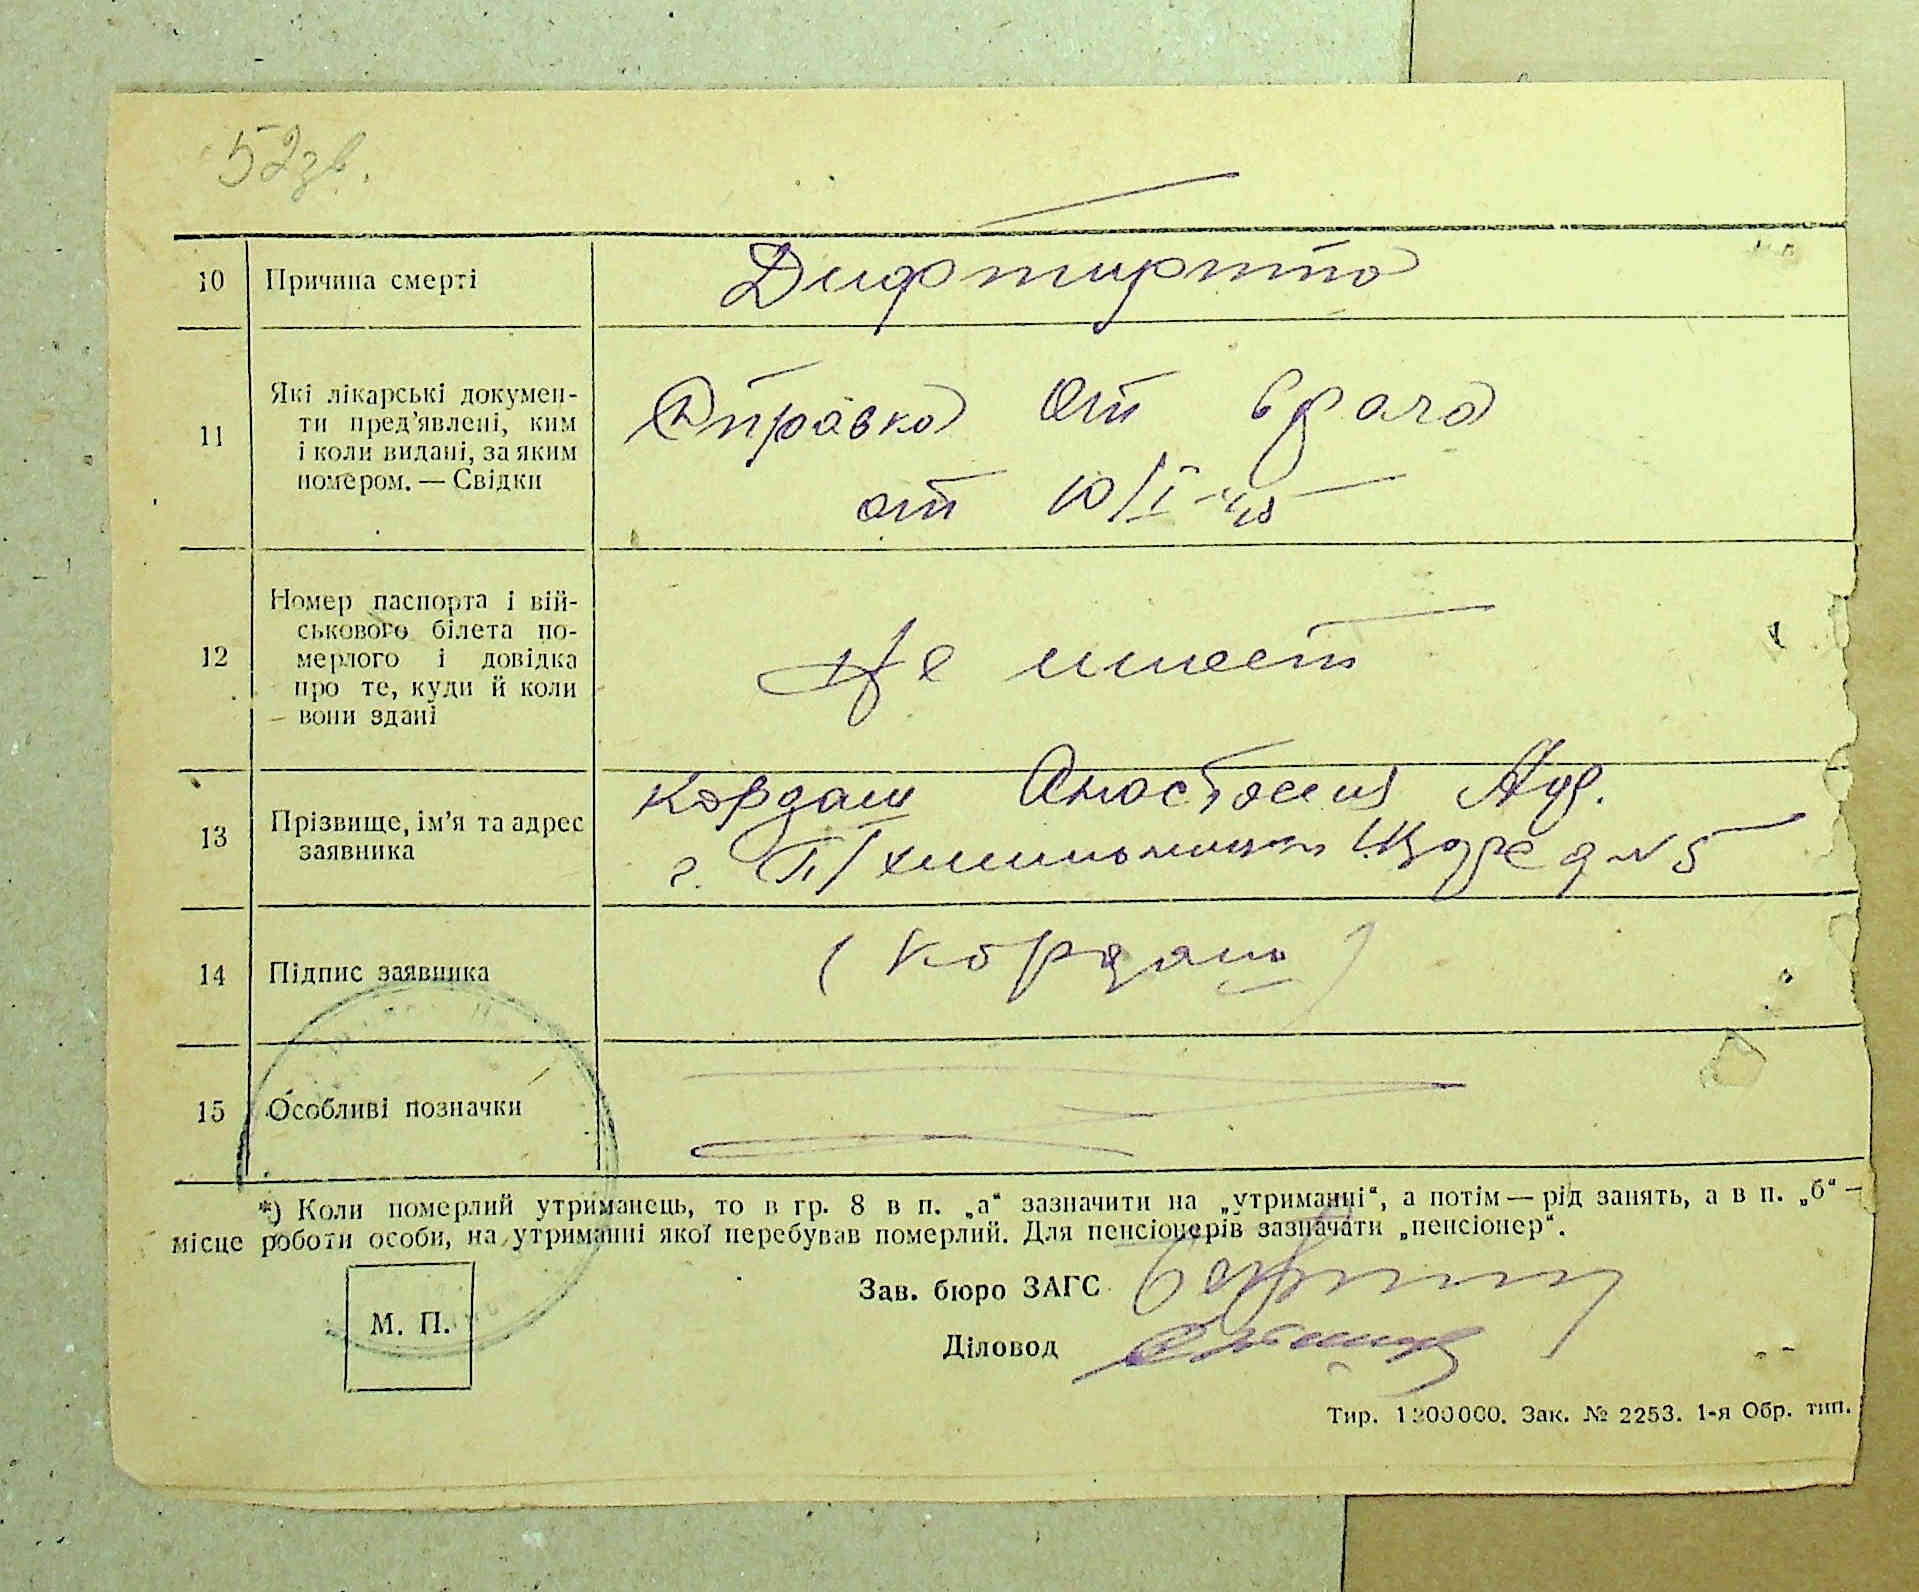 52зв.
10 Причина смерті Дифтирита
11 Які лікарські докумен-
ти пред’явлені, ким
і коли видані, за яким
номером. — Свідки
Справка от врача
от 10/I-45
12 Номер паспорта і вій-
ськового білета по-
мерлого і довідка
про те, куди й коли
вони здані
Не имеет
13 Прізвище, ім’я та адрес
заявника
Кордаш Анастасия
г. П/хмельницк д №5
14 Підпис заявника (Кордаш)
15 Особливі позначки
*) Коли померлий утриманець, то в гр. 8 в п. „а“ зазначити на „утриманні“, а потім — рід занять, а в п. „б“ —
місце роботи особи, на утриманні якої перебував померлий. Для пенсіонерів зазначати „пенсіонер“.
Зав. бюро ЗАГС
М. П.
Діловод
Тир. 1200000. Зак. № 2253. 1-я Обр. тип.